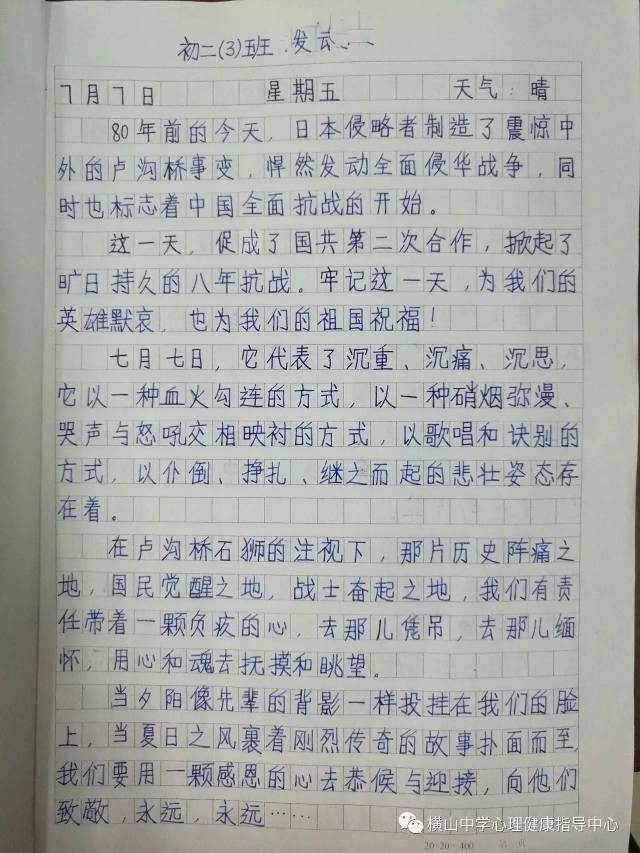 初二(3)班
7月7日 星期五 天气:晴
80年前的今天,日本侵略者制造了震惊中
外的卢沟桥事变,悍然发动全面侵华战争,同
时也标志着中国全面抗战的开始。
这一天,促成了国共第二次合作,掀起了
旷日持久的八年抗战。牢记这一天,为我们的
英雄默哀,也为我们的祖国祝福!
七月七日,它代表了沉重、沉痛、沉思,
它以一种血火勾连的方式,以一种硝烟弥漫、
哭声与怒吼交相映衬的方式,以歌唱和诀别的
方式,以仆倒、挣扎、继之而起的悲壮姿态存
在着。
在卢沟桥石狮的注视下,那片历史阵痛之
地,国民觉醒之地,战士奋起之地,我们有责
任带着一颗负疚的心,去那儿凭吊,去那儿缅
怀,用心和魂去抚摸和眺望。
当夕阳像先辈的背影一样投挂在我们的脸
上,当夏日之风裹着刚烈传奇的故事扑面而至,
我们要用一颗感恩的心去恭候与迎接,向他们
致敬,永远,永远……
横山中学心理健康指导中心
20×20=400